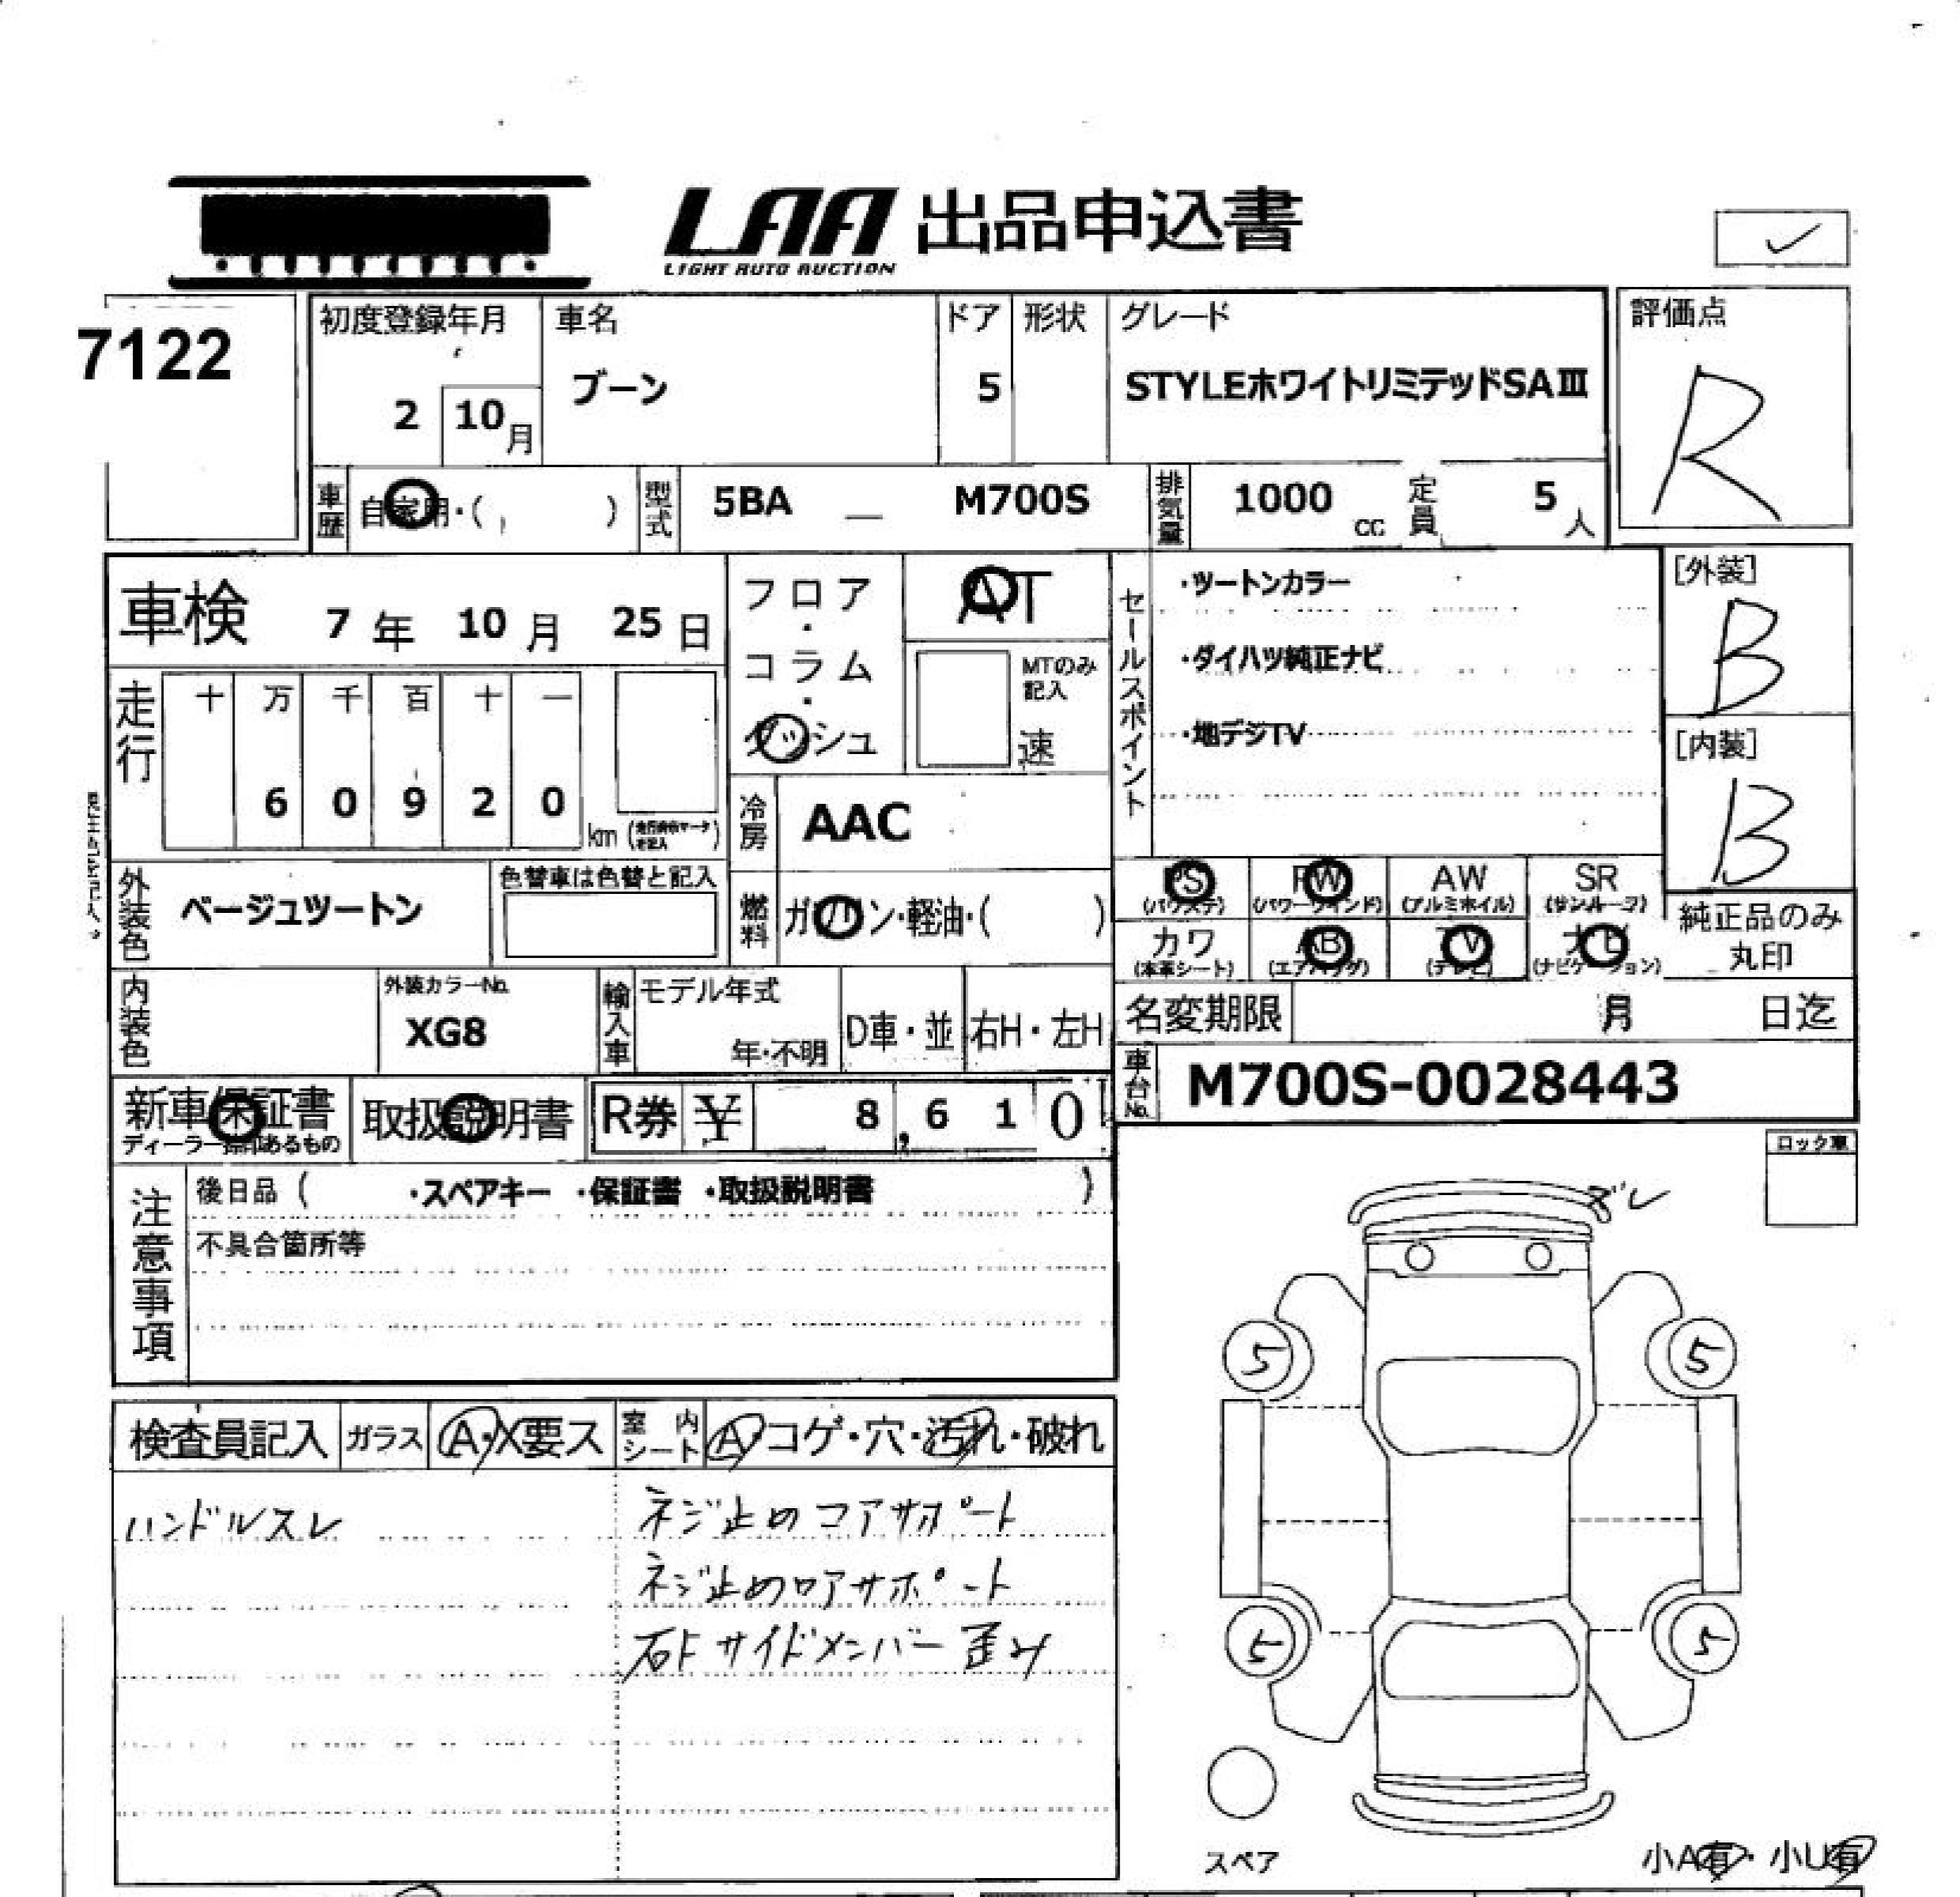 LAA 出品申込書
LIGHT AUTO AUCTION
✓
7122
初度登録年月 車名 ドア 形状 グレード 評価点
2 10月 ブーン 5 STYLEホワイトリミテッドSAⅢ R
車歴 自家用・( ) 型式 5BA — M700S 排気量 1000 cc 定員 5 人
車検 7 年 10 月 25 日
フロア・コラム・ダッシュ
AT
MTのみ記入
速
セールスポイント
・ツートンカラー
・ダイハツ純正ナビ
・地デジTV
[外装]
B
[内装]
B
走行 十 万 千 百 十 一
6 0 9 2 0 km
冷房 AAC
外装色 ベージュツートン 色替車は色替と記入
燃料 ガソリン・軽油・( )
PS (パワステ) PW (パワーウインド) AW (アルミホイル) SR (サンルーフ)
カワ (本革シート) AB (エアバッグ) TV (テレビ) ナビ (ナビゲーション)
純正品のみ
丸印
内装色 外装カラーNo. XG8 輸入車 モデル年式 年・不明 D車・並 右H・左H
名変期限 月 日迄
車台No. M700S-0028443
新車保証書 取扱説明書 R券 ¥ 8,610
ディーラー捺印あるもの
ロック車
注意事項
後日品 ( ・スペアキー ・保証書 ・取扱説明書 )
不具合箇所等
ズレ
5 5
検査員記入 ガラス A・X要ス 室内シート A コゲ・穴・汚れ・破れ
ハンドルスレ
ネジ止めコアサポート
ネジ止めロアサポート
右Fサイドメンバー歪み
5 5
スペア
小A有・小U有